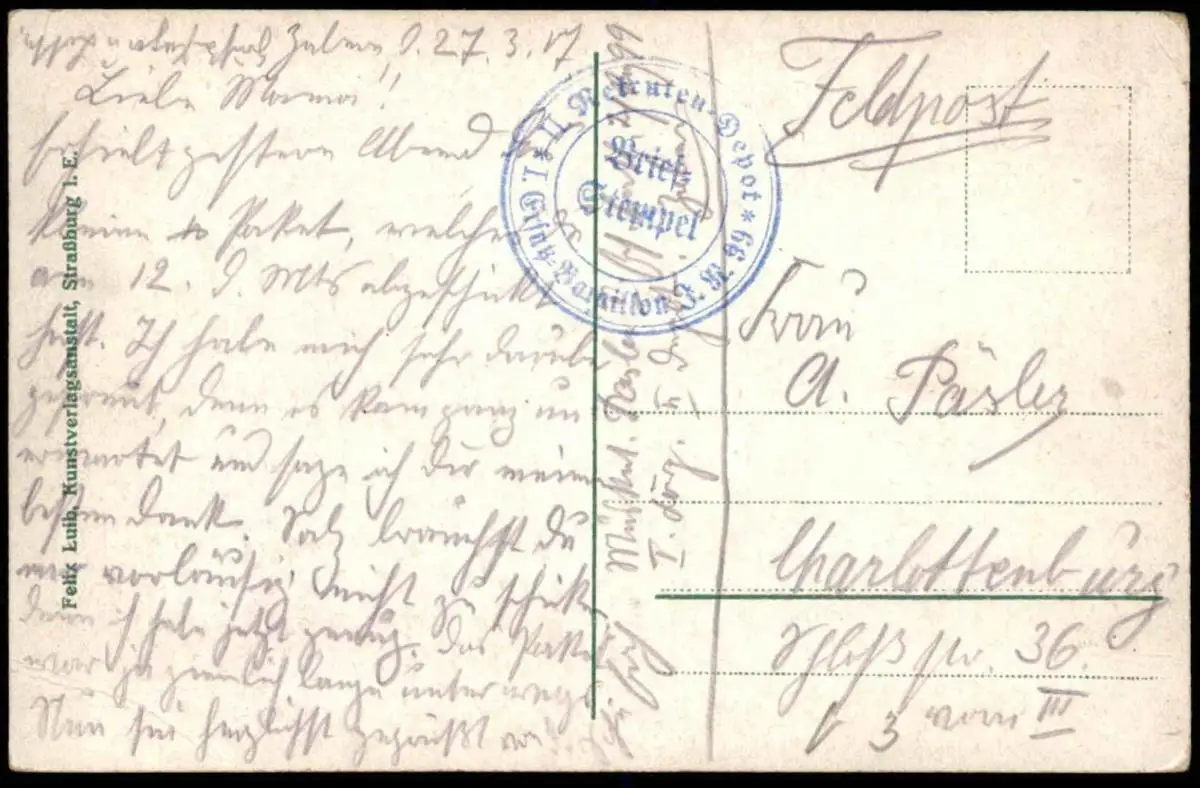 Zabern, d. 27.3.17
Liebe Mama!!
Erhielt gestern Abend
kleine Paket, welches Du
am 12. d. Mts abgeschickt
hast. Ich habe mich sehr darüber
gefreut, denn es kam ganz un
erwartet und sage ich Dir meinen
besten Dank. Salz brauchst Du
mir vorläufig nicht zu schicken
denn ich habe jetzt genug. Das Paket
war ja ziemlich lange unterwegs.
Nun sei herzlichst gegrüßt
Musket. Päsler
I. Ers.
Felix Luib, Kunstverlagsanstalt, Straßburg i. E.
I. * II. Rekruten-Depot * Ersatz-Bataillon J. R. 99
Brief-
Stempel
Feldpost
Frau
A. Päsler
Charlottenburg
Schloß str. 36.
v 3 vorn III